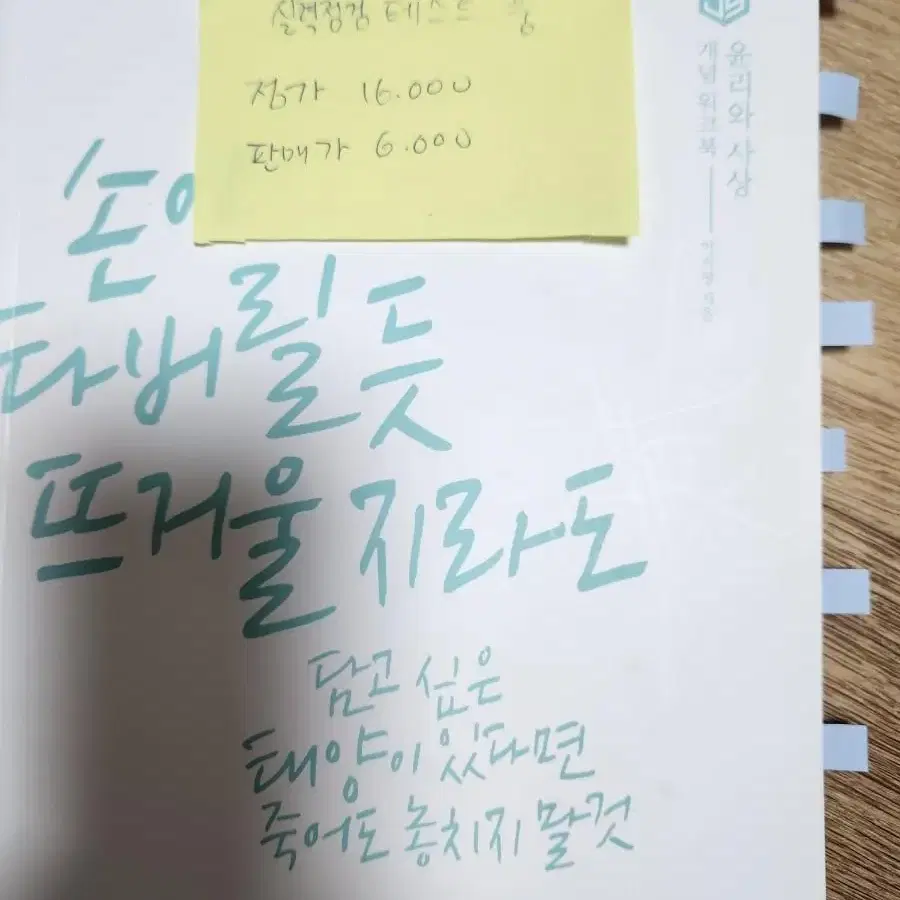 실력점검 테스트
정가 16.000
판매가 6.000
윤리와 사상
개념 워크북
타버릴 듯
뜨거울지라도
담고 싶은
태양이 있다면
죽어도 놓치지 말 것